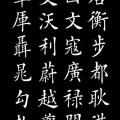 居衡步都耿
國文寇廣祿
殳沃利蔚越
厙聶晁勾